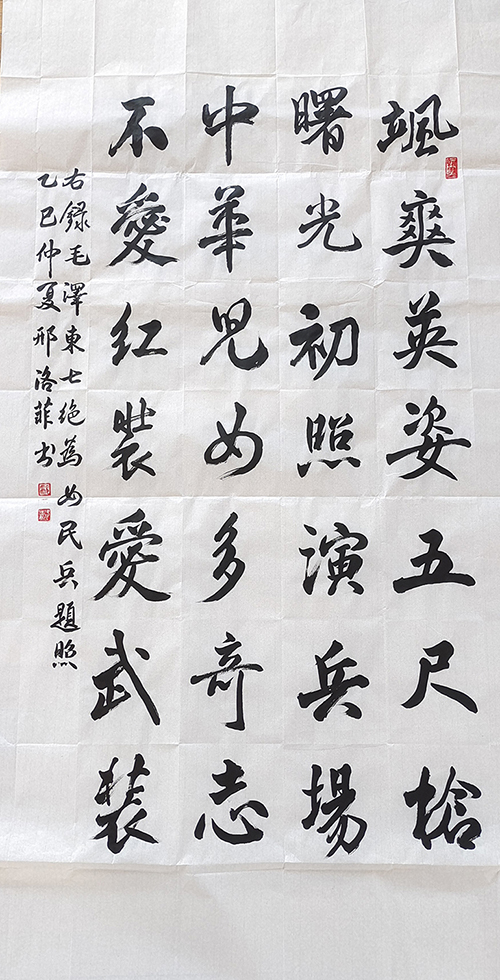 颯爽英姿五尺槍
曙光初照演兵場
中華兒女多奇志
不愛紅裝愛武裝
右錄毛澤東七絕為女民兵題照
乙巳仲夏邢洛菲书